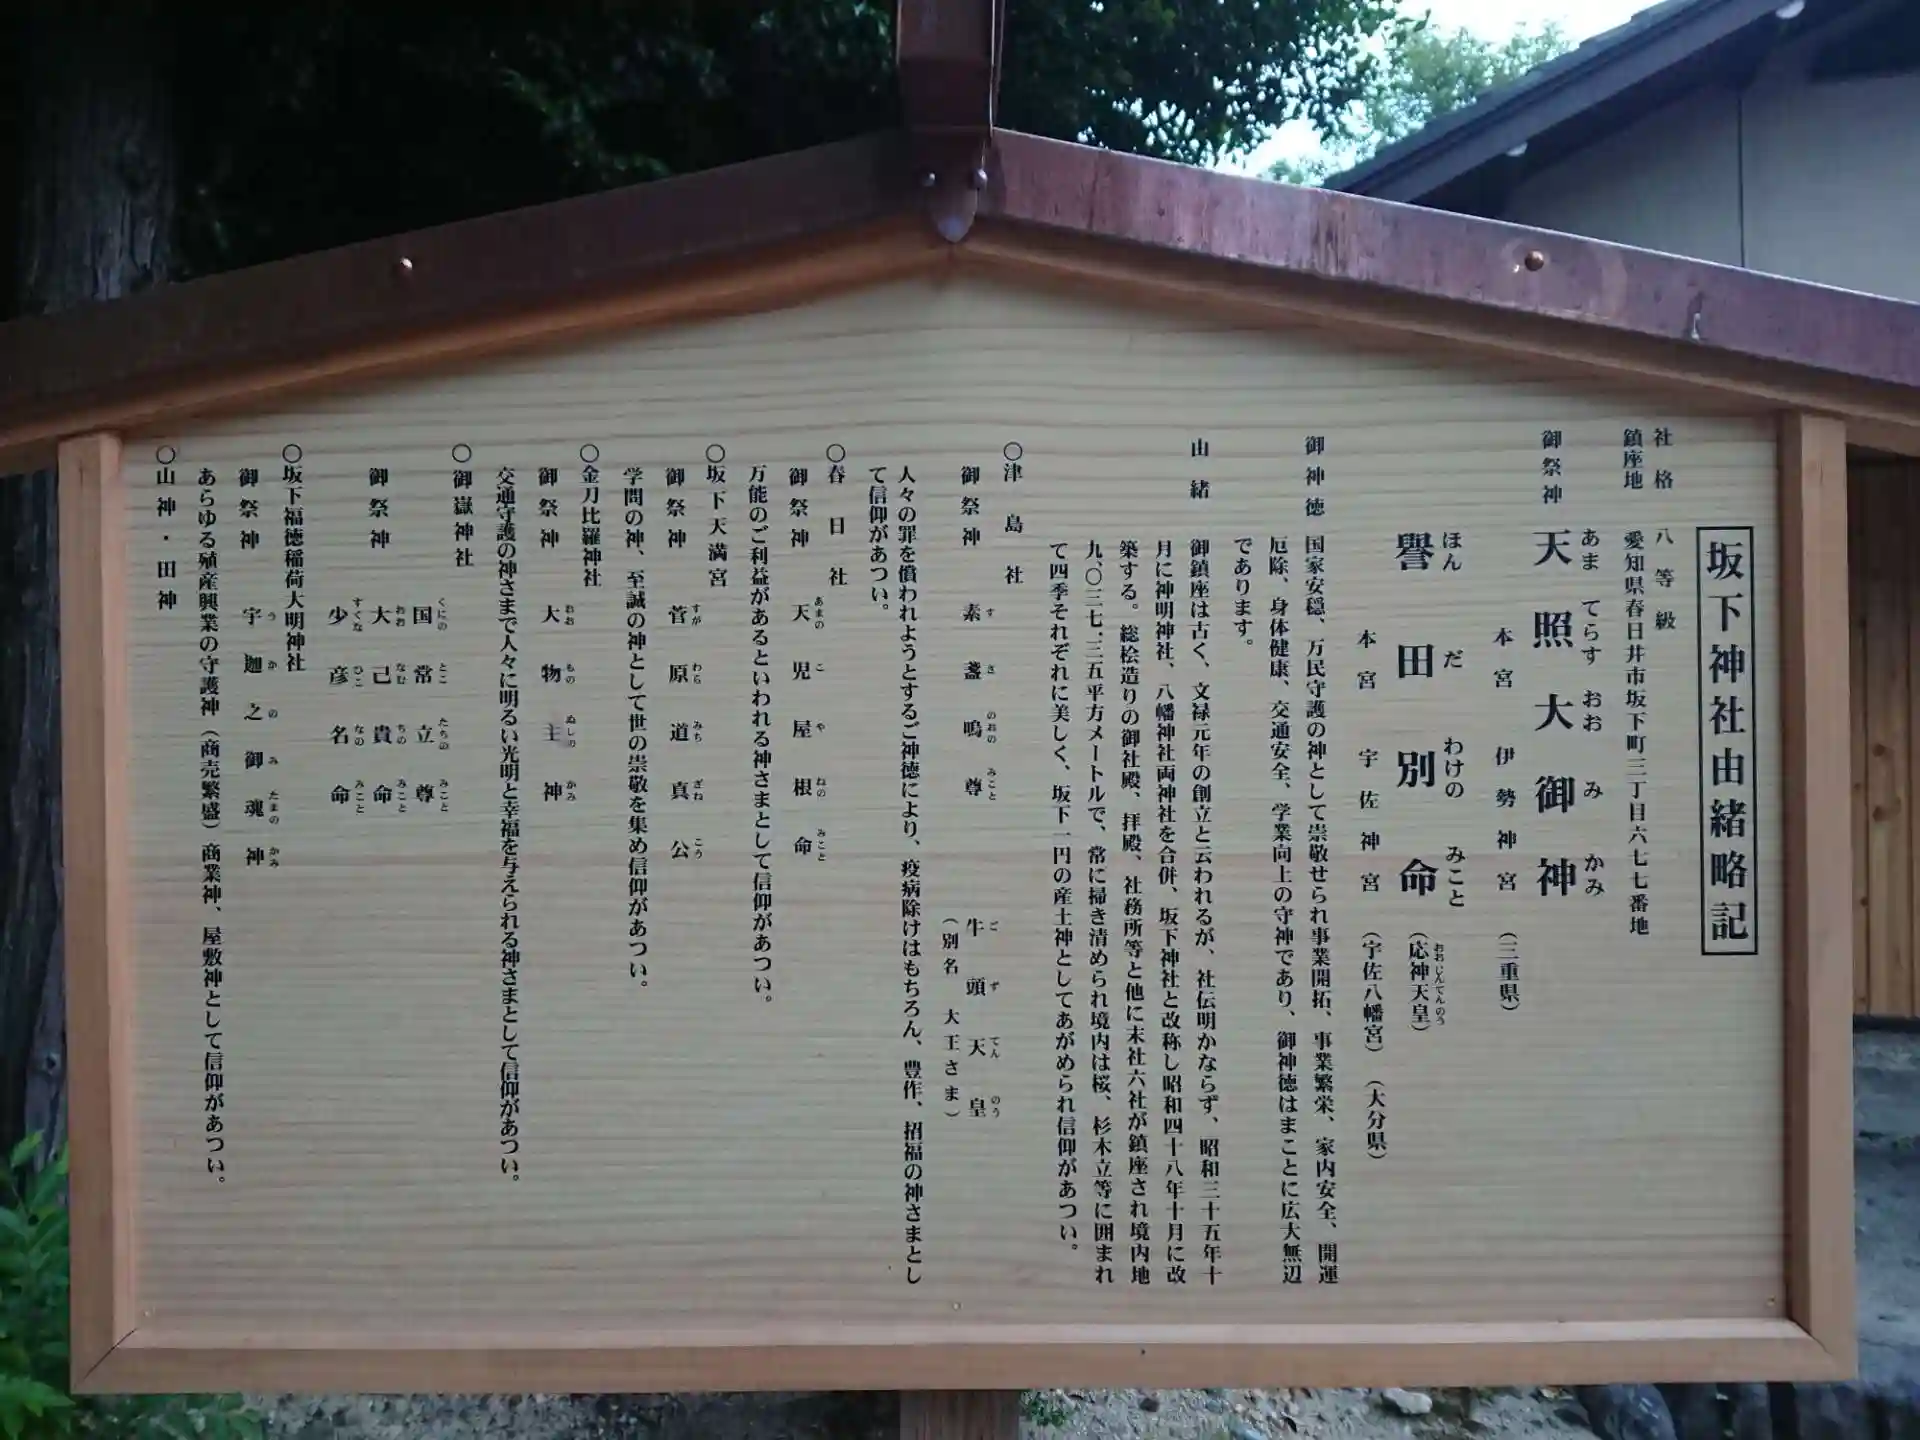 坂下神社由緒略記
社格 八等級
鎮座地 愛知県春日井市坂下町三丁目六七七番地
御祭神 天照大御神
あま てらす おお み かみ
本宮 伊勢神宮 (三重県)
譽田別命 (応神天皇)
ほん だ わけの みこと おおじんてんのう
本宮 宇佐神宮 (宇佐八幡宮) (大分県)
御神徳 国家安穏、万民守護の神として崇敬せられ事業開拓、事業繁栄、家内安全、開運
厄除、身体健康、交通安全、学業向上の守神であり、御神徳はまことに広大無辺
であります。
由緒 御鎮座は古く、文禄元年の創立と云われるが、社伝明かならず、昭和三十五年十
月に神明神社、八幡神社両神社を合併、坂下神社と改称し昭和四十八年十月に改
築する。総桧造りの御社殿、拝殿、社務所等と他に末社六社が鎮座され境内地
九、〇三七.三五平方メートルで、常に掃き清められ境内は桜、杉木立等に囲まれ
て四季それぞれに美しく、坂下一円の産土神としてあがめられ信仰があつい。
〇津島社
御祭神 素盞嗚尊 牛頭天皇
す さ のおの みこと ご ず てん のう
(別名 大王さま)
人々の罪を償われようとするご神徳により、疫病除けはもちろん、豊作、招福の神さまとし
て信仰があつい。
〇春日社
御祭神 天児屋根命
あまの こ や ねの みこと
万能のご利益があるといわれる神さまとして信仰があつい。
〇坂下天満宮
御祭神 菅原道真公
すが わら みち ざね こう
学問の神、至誠の神として世の崇敬を集め信仰があつい。
〇金刀比羅神社
御祭神 大物主神
おお もの ぬしの かみ
交通守護の神さまで人々に明るい光明と幸福を与えられる神さまとして信仰があつい。
〇御嶽神社
国常立尊
くにの とこ たちの みこと
御祭神 大己貴命
おお なむ ちの みこと
少彦名命
すくな ひこ なの みこと
〇坂下福徳稲荷大明神社
御祭神 宇迦之御魂神
う か の み たまの かみ
あらゆる殖産興業の守護神(商売繁盛)商業神、屋敷神として信仰があつい。
〇山神・田神